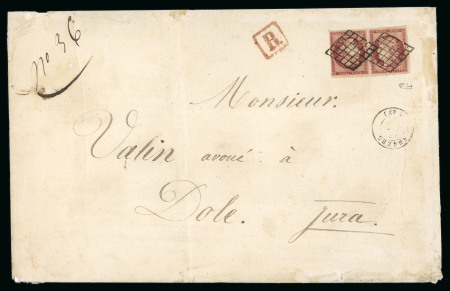 No 36
R
Monsieur.
Valin avoué à
Dole. Jura.